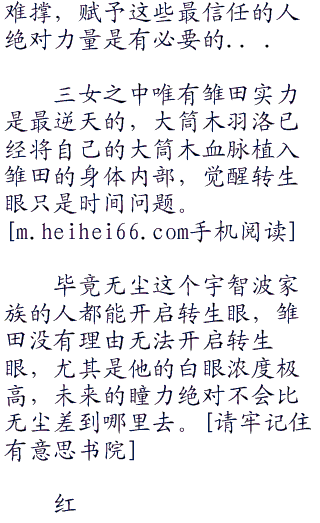 难撑，赋予这些最信任的人
绝对力量是有必要的...
三女之中唯有雏田实力
是最逆天的，大筒木羽洛已
经将自己的大筒木血脉植入
雏田的身体内部，觉醒转生
眼只是时间问题。
[m.heihei66.com手机阅读]
毕竟无尘这个宇智波家
族的人都能开启转生眼，雏
田没有理由无法开启转生
眼，尤其是他的白眼浓度极
高，未来的瞳力绝对不会比
无尘差到哪里去。[请牢记住
有意思书院]
红